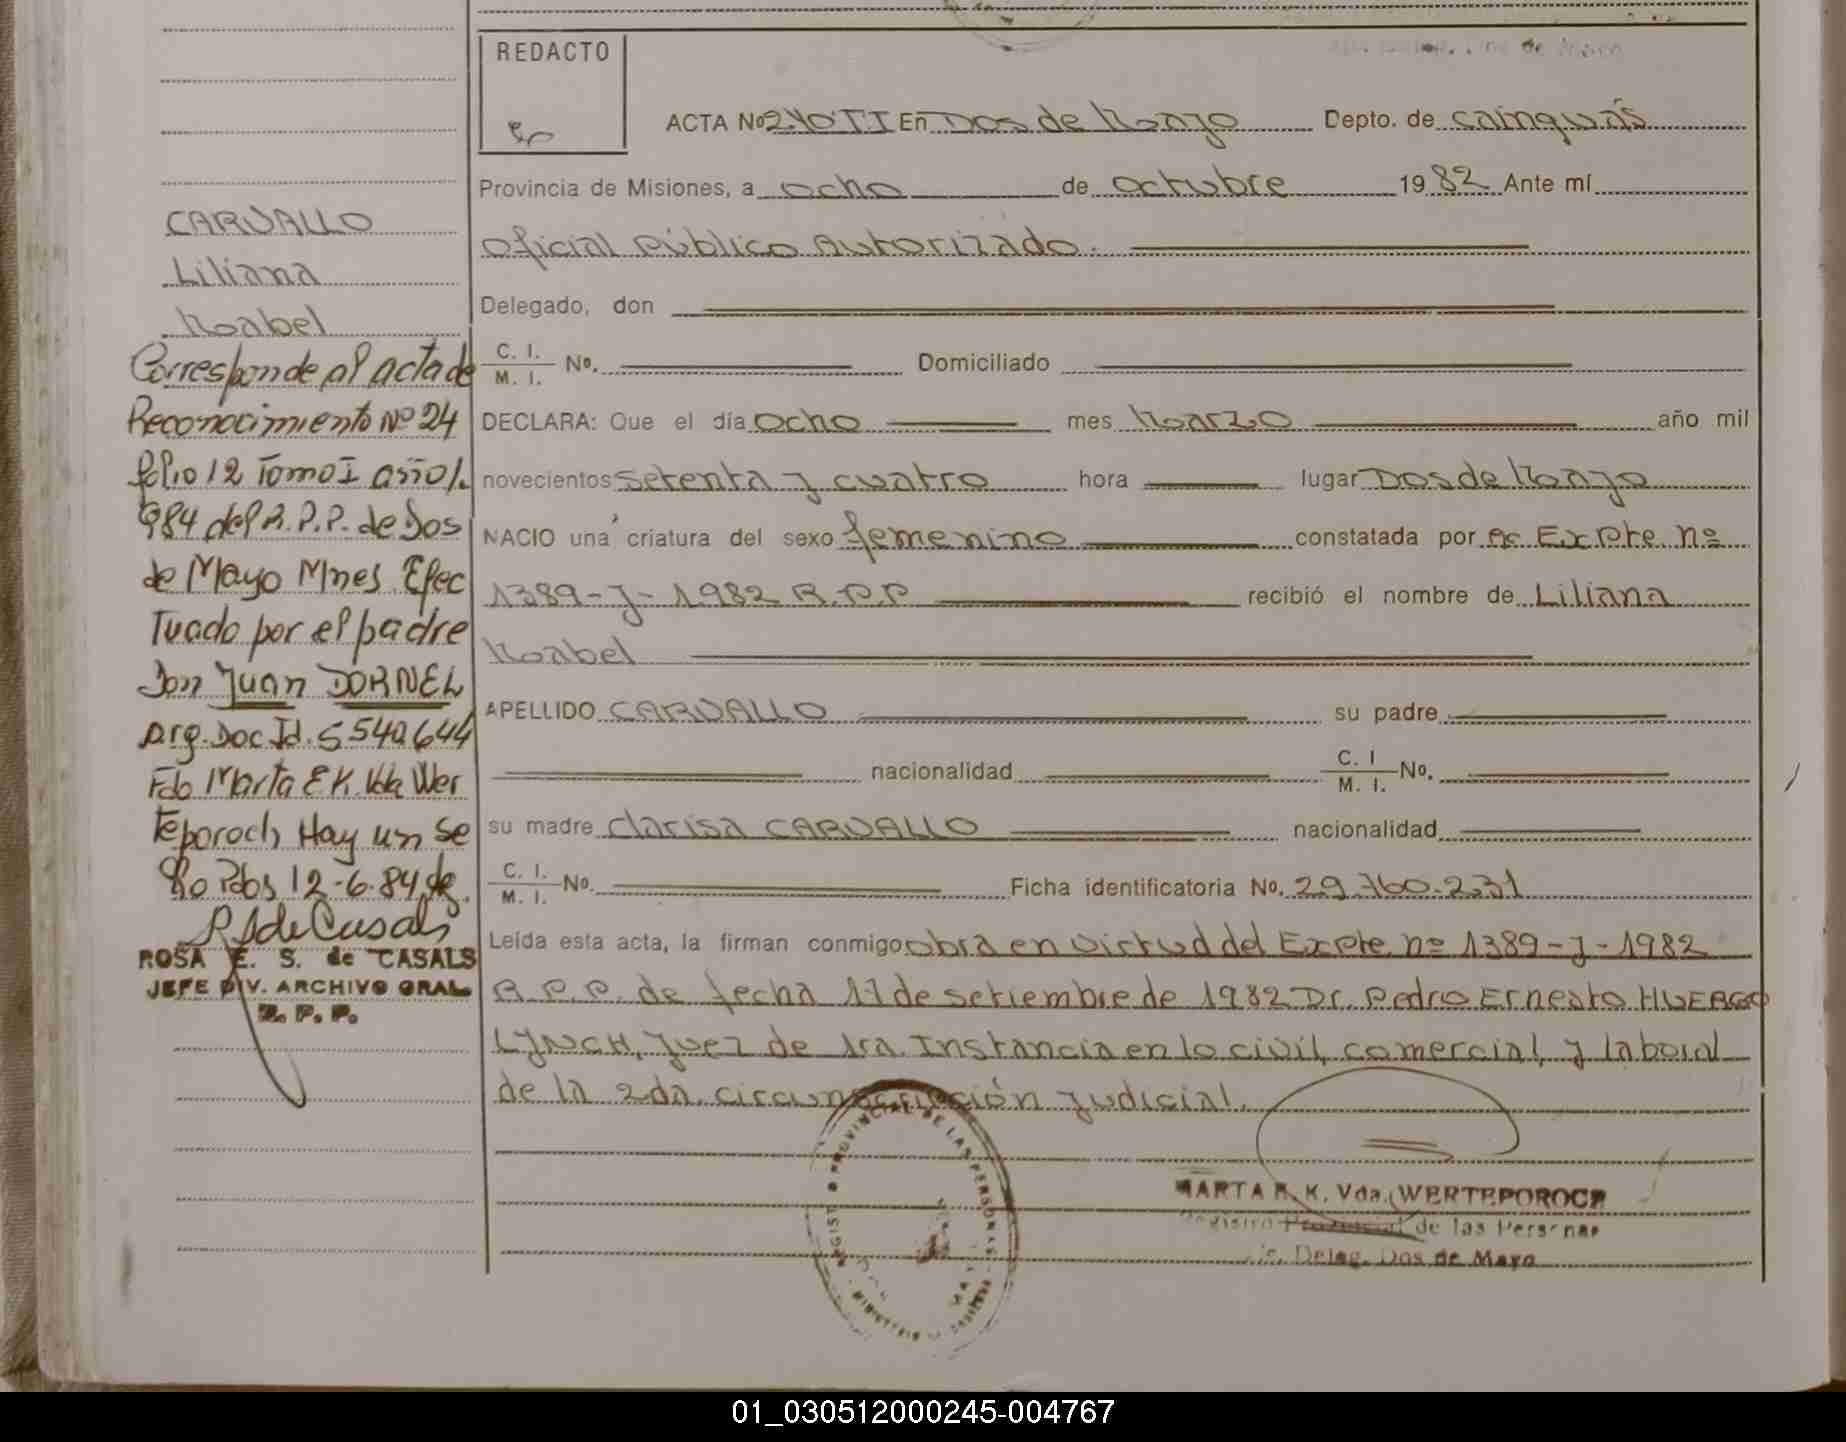 CARVALLO
Liliana
Mabel
Corresponde al acta de
Reconocimiento Nº 24
folio 12 Tomo I año 1.
984 del R.P.P. de Dos
de Mayo Mnes. Efec
tuado por el padre
Don Juan DORNEL
Arg. Doc Id. 5540644
Fdo Marta E K. Vda Wer
teporoch Hay un se
llo Pdas 12-6-84 de
R S de Casals
ROSA E. S. de CASALS
JEFE DIV. ARCHIVO GRAL
R. P. P.
REDACTO
ACTA Nº 240 TI En Dos de Mayo Depto. de Cainguás
Provincia de Misiones, a ocho de octubre 1982 Ante mí
oficial Público Autorizado.
Delegado, don
C. I.
M. I. Nº. Domiciliado
DECLARA: Que el día ocho mes Marzo año mil
novecientos setenta y cuatro hora lugar Dos de Mayo
NACIO una criatura del sexo femenino constatada por Expte. nº
1389-J-1982 R.P.P recibió el nombre de Liliana
Mabel
APELLIDO CARVALLO su padre
nacionalidad C. I
M. I. Nº.
su madre clarisa CARVALLO nacionalidad
C. I.
M. I. Nº. Ficha identificatoria Nº. 29.760.231
Leída esta acta, la firman conmigo obra en virtud del Expte. nº 1389-J-1982
R.P.P. de fecha 17 de setiembre de 1982 Dr. Pedro Ernesto HUERGO
LYNCH, Juez de 1ra. Instancia en lo civil, comercial, y laboral
de la 2da. circunscripción judicial.
REGIST PROVINCIAL DE LAS PERSONAS
MARTA E. K. Vda. WERTEPOROCH
Registro Provincial de las Personas
Deleg. Dos de Mayo
01_030512000245-004767